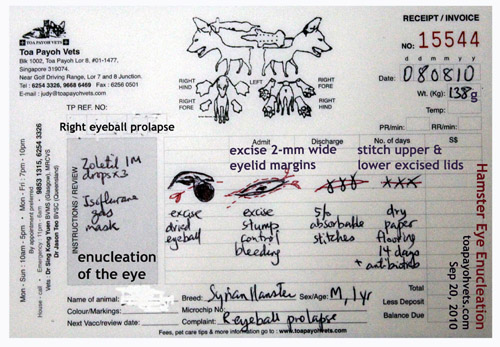 RECEIPT / INVOICE
Toa Payoh Vets
Blk 1002, Toa Payoh Lor 8, #01-1477,
Singapore 319074.
Near Golf Driving Range, Lor 7 and 8 Junction.
Tel : 6254 3326, 9668 6469 Fax : 6256 0501
E-mail : judy@toapayohvets.com
NO: 15544
d d m m y y
Date: 080810
Wt. (Kg): 138g
Temp:
RIGHT HIND
LEFT HIND
RIGHT FORE
LEFT FORE
RIGHT HIND
RIGHT FORE
TP REF. NO:
PR/min:
RR/min:
Right eyeball prolapse
Admit
Discharge
No. of days
S$
excise 2-mm wide eyelid margins
stitch upper & lower excised lids
INSTRUCTIONS / REVIEW
Zoletil IM
drops x3
Isoflurane
gas
mask
enucleation of the eye
excise
dried
eyeball
excise
stump
control
bleeding
5/0
absorbable
stitches
dry
paper
flooring
14 days
+ antibiotib
Mon - Sun : 10am - 5pm • Mon - Fri : 7pm - 10pm
By appointment preferred
House - call • Emergency : 11pm - 6am • 9853 1315, 6254 3326
Vets : Dr Sing Kong Yuen BVMS (Glasgow), MRCVS
Dr Jason Teo BVSC (Queensland)
Hamster Eye Enucleation
toapayohvets.com
Sep 20, 2010
Name of animal:
Breed: Syrian Hamster
Sex/Age: M, 1yr
Total
Colour/Markings:
Microchip No:
Less Deposit
Next Vacc/review date:
Complaint: R eyeball prolapse
Balance Due
Fees, pet care tips & more information : go to www.toapayohvets.com